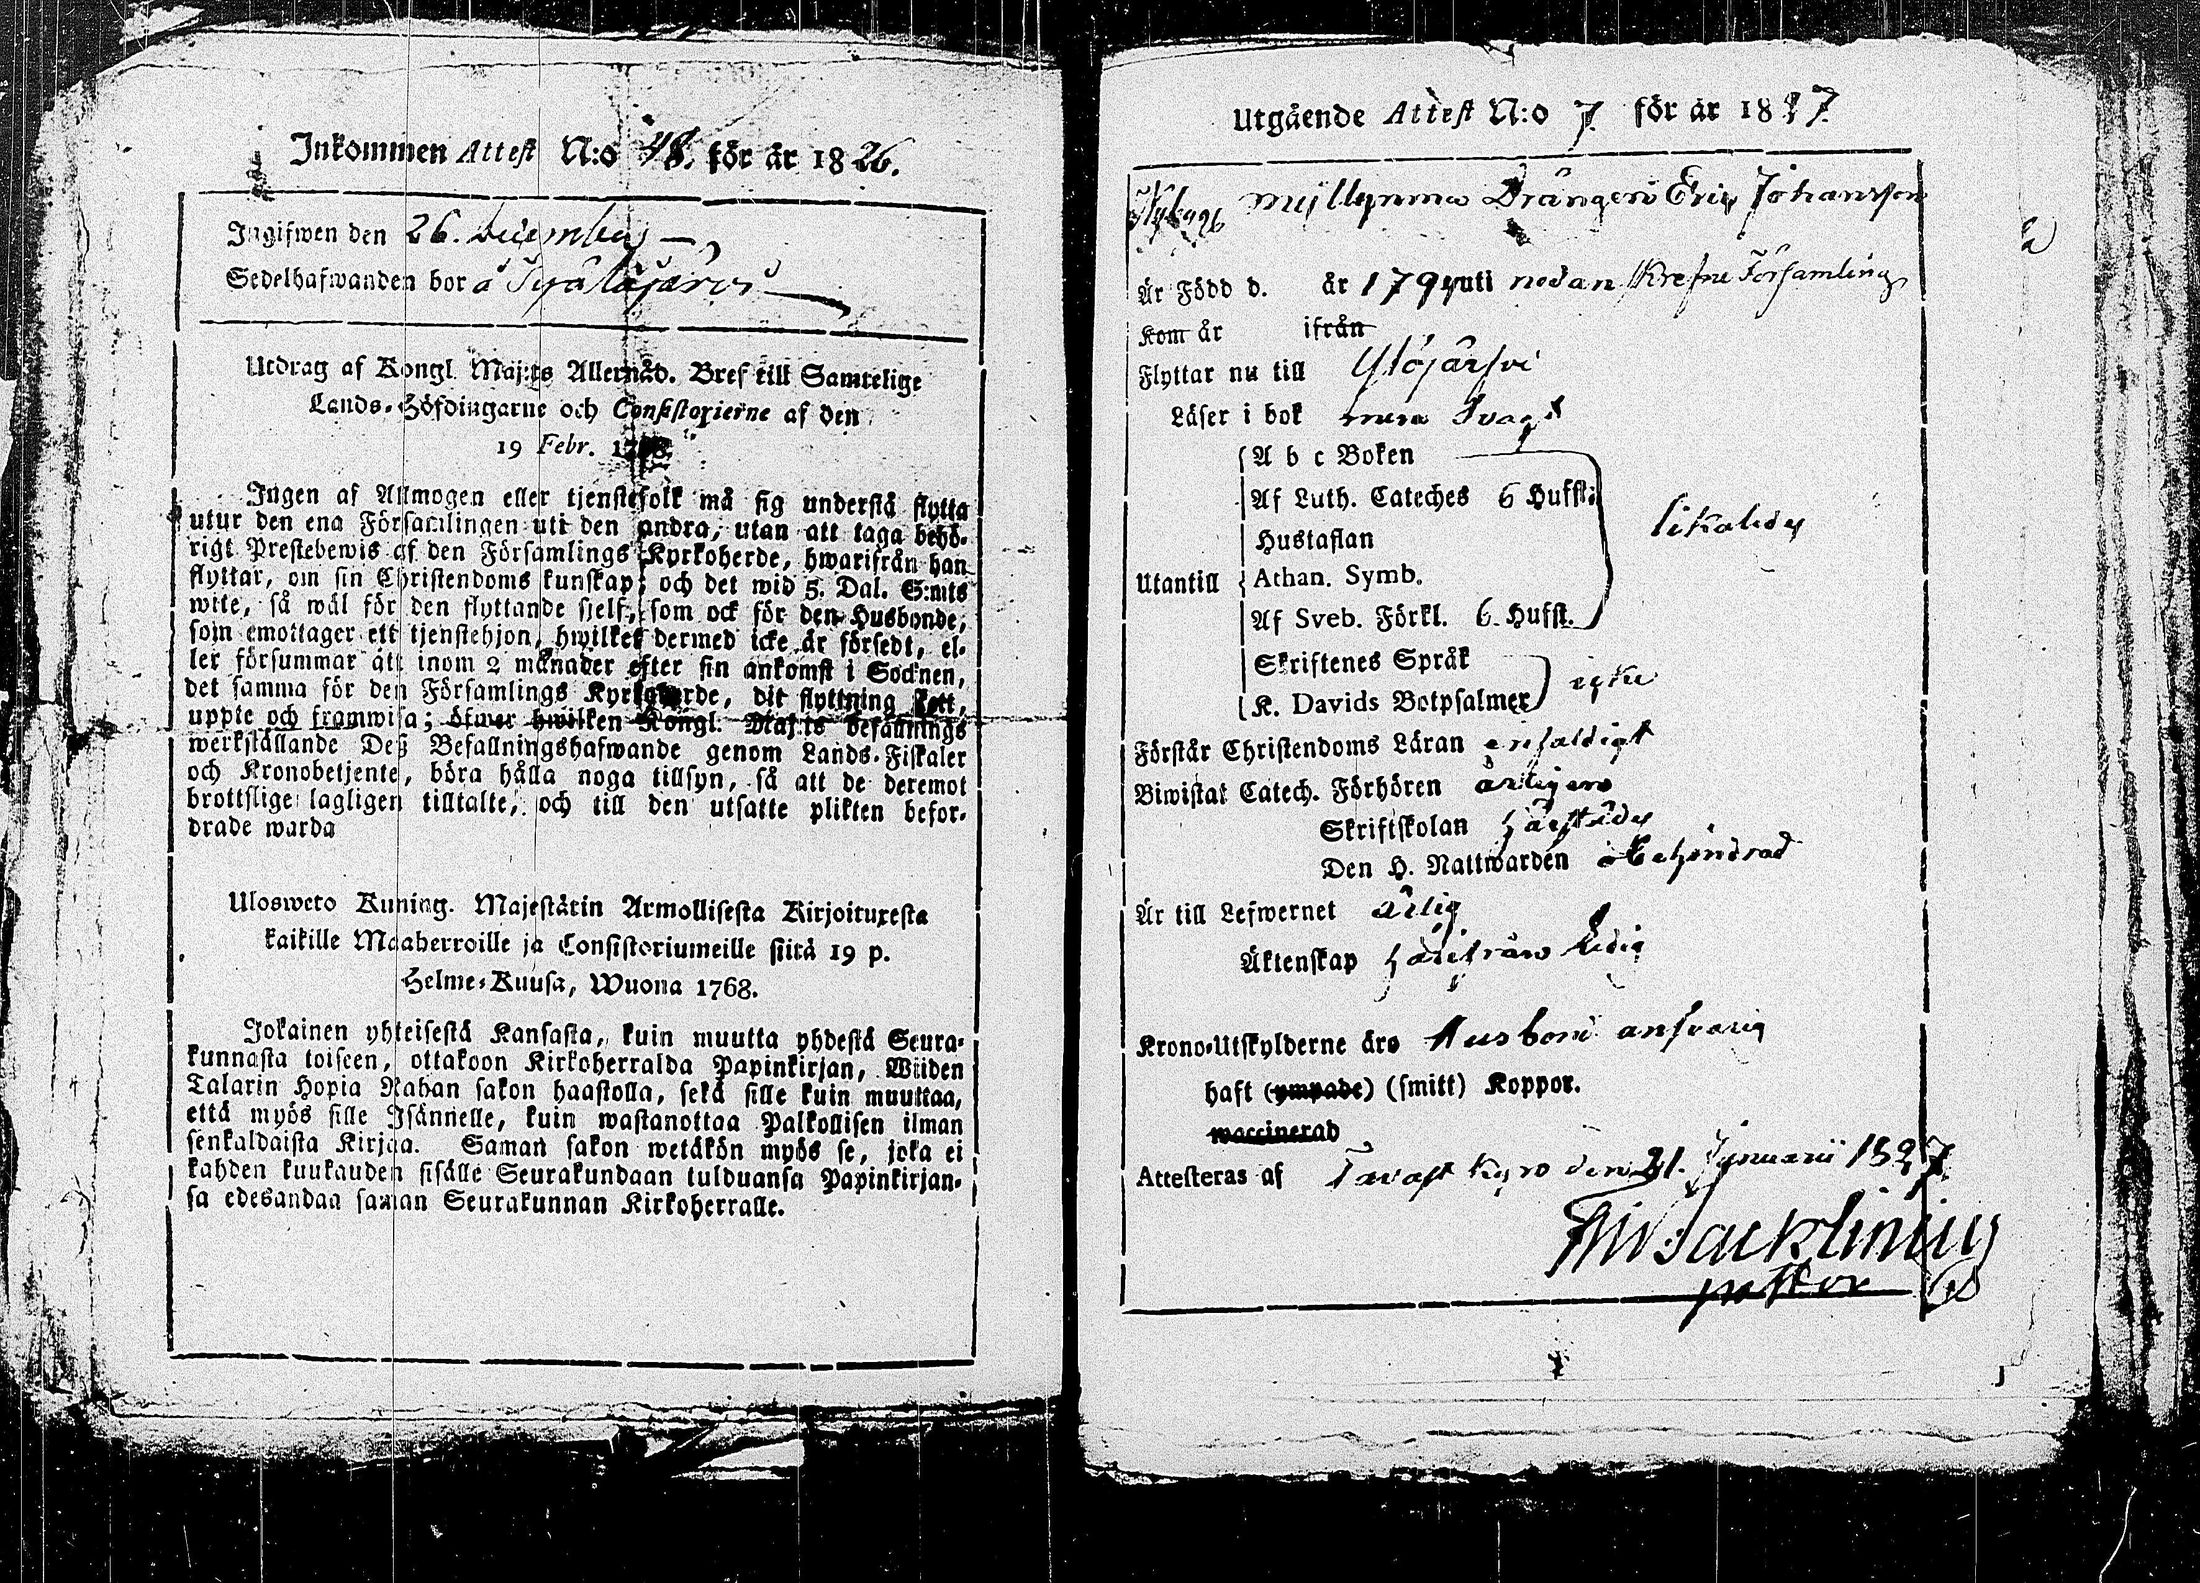 Inkommen Attest N:o 48. för år 1826.
Ingifwen den 26. December
Sedelhafwanden bor å
Utdrag af Kongl. Maj:ts Allernåd. Bref till Samtelige
Lands-Höfdingarne och Consistorierne af den
19 Febr. 1768.
Ingen af Allmogen eller tjenstefolk må sig understå flytta
utur den ena Församlingen uti den andra, utan att taga behö-
rigt Prestebewis af den Församlings Kyrkoherde, hwarifrån han
flyttar, om sin Christendoms kunskap; och det wid 5. Dal. S:mts
wite, så wäl för den flyttande sjelf, som ock för den Husbonde,
som emottager ett tjenstehjon, hwilket dermed icke är försedt, el-
ler försummar att inom 2 månader efter sin ankomst i Socknen,
det samma för den Församlings Kyrkoherde, dit flyttning skett,
uppte och framwisa; öfwer hwilken Kongl. Maj:ts befallnings
werkställande Deß Befallningshafwande genom Lands-Fiskaler
och Kronobetjente, böra hålla noga tillsyn, så att de deremot
brottslige lagligen tilltalte, och till den utsatte plikten befor-
drade warda
Ulosweto Kuning. Majestätin Armollisesta Kirjoituxesta
kaikille Maaherroille ja Consistoriumeille siitä 19 p.
Helme-Kuusa, Wuona 1768.
Jokainen yhteisestä Kansasta, kuin muutta yhdestä Seura-
kunnasta toiseen, ottakoon Kirkoherralda Papinkirjan, Wiiden
Talarin Hopia Rahan sakon haastolla, sekä sille kuin muuttaa,
että myös sille Isännelle, kuin wastanottaa Palkollisen ilman
senkaldaista Kirjaa. Saman sakon wetäkön myös se, joka ei
kahden kuukauden sisälle Seurakundaan tulduansa Papinkirjan-
sa edesandaa saman Seurakunnan Kirkoherralle.
Utgående Attest N:o 7. för år 1827.
Myllynma Drängen Eric Johansson
Är Född d. år 179 uti nedan Församling
Kom år ifrån
Flyttar nu till Ylöjärfvi
Läser i bok mera svagt
A b c Boken
Af Luth. Cateches 6 Hufst:
Hustaflan
likaledes
Utantill Athan. Symb.
Af Sveb. Förkl. 6. Hufst.
Skriftenes Språk
K. Davids Botpsalmer icke
Förstår Christendoms Läran enfaldigt
Biwistat Catech. Förhören årligen
Skriftskolan härstädes
Den H. Nattwarden obehindrad
Är till Lefwernet ärlig
Äktenskap härifrån ledig
Krono-Utskylderne äro Husbond ansvarig
haft (ympade) (smitt) Koppor.
waccinerad
Attesteras af Tavastkyro den 21. Januarii 1827.
pastor